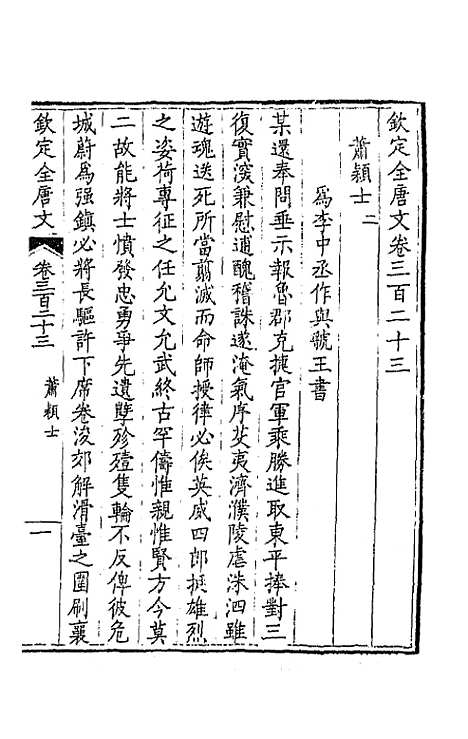 欽定全唐文卷三百二十三
蕭穎士二
爲李中丞作與虢王書
某還奉問垂示報魯郡克捷官軍乘勝進取東平捧對三
復實深兼慰逋醜稽誅遂淹氣序芟夷濟濮陵虐洙泗雖
遊魂送死所當翦滅而命師授律必俟英威四郎挺雄烈
之姿荷專征之任允文允武終古罕儔惟親惟賢方今莫
二故能將士憤發忠勇爭先遺孽殄殪隻輪不反俾彼危
城蔚爲强鎮必將長驅許下席卷浚郊解滑臺之圍刷襄
欽定全唐文
卷三百二十三
蕭穎士
一